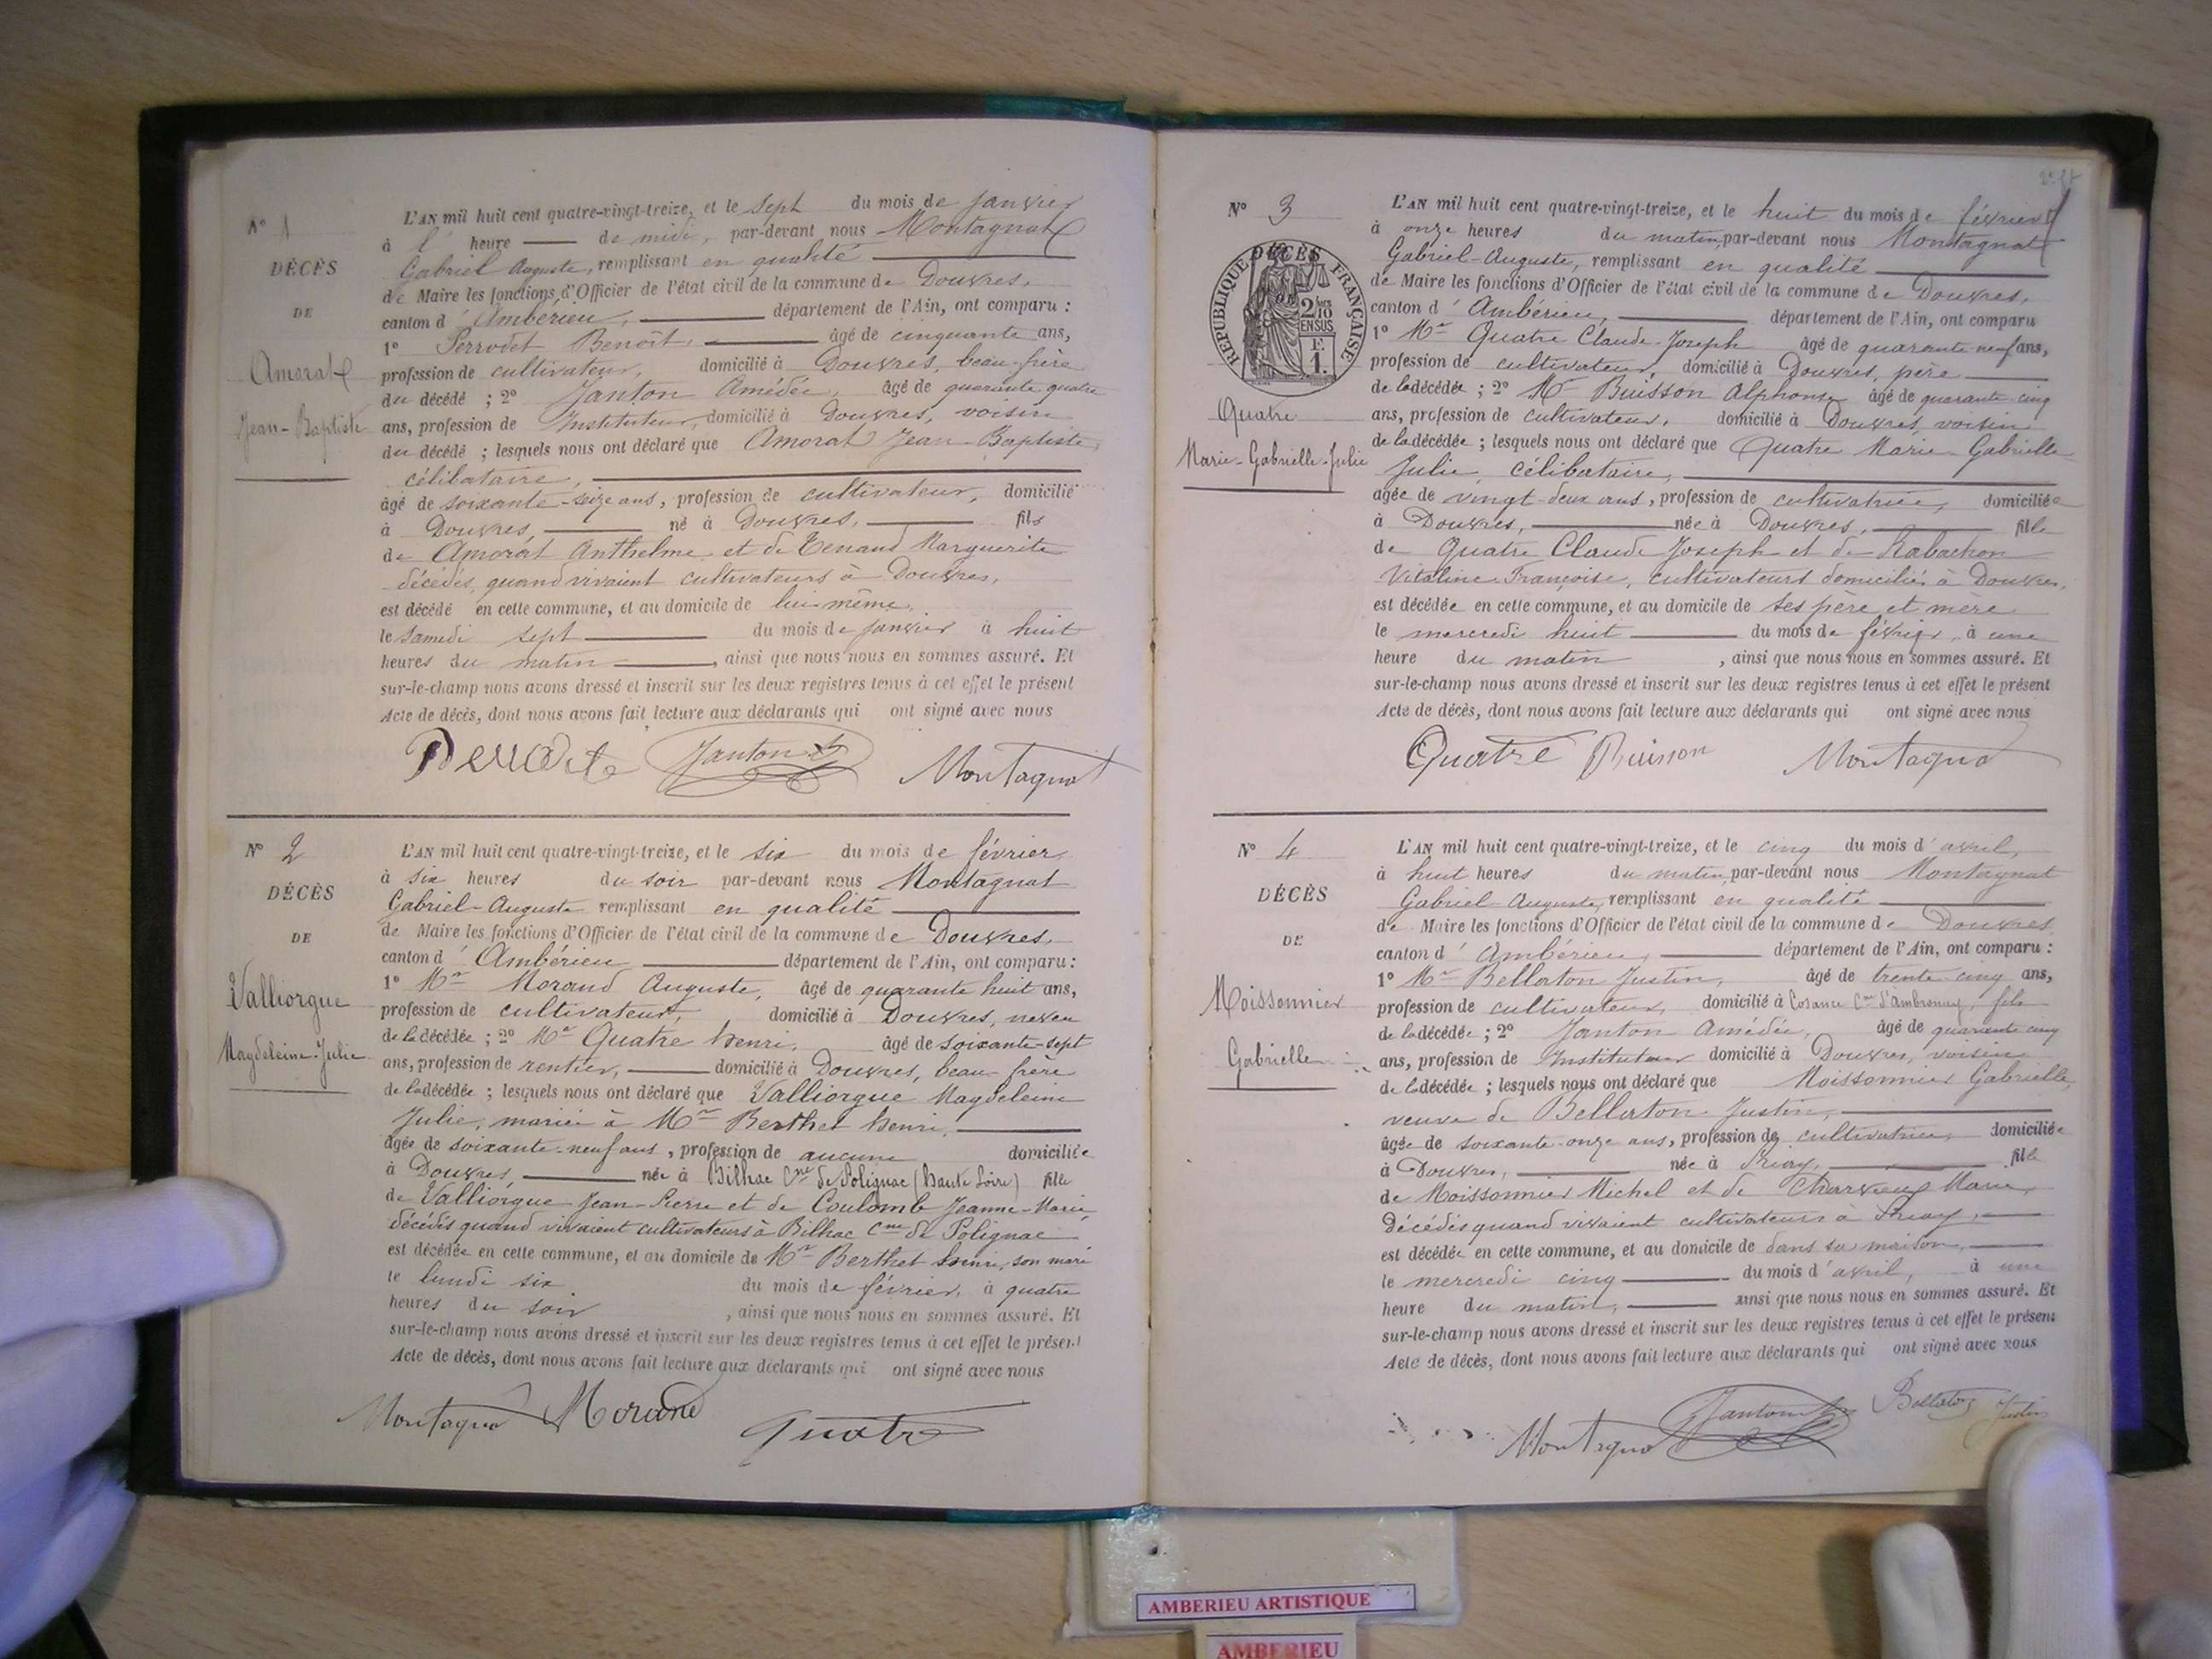 N° 1
DÉCÈS
DE
Amorat
Jean-Baptiste
L'AN mil huit cent quatre-vingt-treize, et le sept du mois de janvier
à l' heure de midi, par-devant nous Montagnat
Gabriel Auguste, remplissant en qualité
de Maire les fonctions d'Officier de l'état civil de la commune de Douvres,
canton d'Ambérieu, département de l'Ain, ont comparu :
1° Perrodet Benoît, âgé de cinquante ans,
profession de cultivateur, domicilié à Douvres, beau-frère
du décédé ; 2° Janton Amédée, âgé de quarante quatre
ans, profession de Instituteur, domicilié à Douvres, voisin
du décédé ; lesquels nous ont déclaré que Amorat Jean-Baptiste,
célibataire,
âgé de soixante-seize ans, profession de cultivateur, domicilié
à Douvres, né à Douvres, fils
de Amorat Anthelme et de Tenand Marguerite
décédés, quand vivaient cultivateurs à Douvres,
est décédé en cette commune, et au domicile de lui même,
le samedi sept du mois de janvier à huit
heures du matin, ainsi que nous nous en sommes assuré. Et
sur-le-champ nous avons dressé et inscrit sur les deux registres tenus à cet effet le présent
Acte de décès, dont nous avons fait lecture aux déclarants qui ont signé avec nous
Perrodet Janton Montagnat
N° 2
DÉCÈS
DE
Valliorgue
Magdeleine-Julie
L'AN mil huit cent quatre-vingt-treize, et le six du mois de février,
à six heures du soir par-devant nous Montagnat
Gabriel-Auguste remplissant en qualité
de Maire les fonctions d'Officier de l'état civil de la commune de Douvres,
canton d'Ambérieu département de l'Ain, ont comparu :
1° Mr Morand Auguste, âgé de quarante huit ans,
profession de cultivateur, domicilié à Douvres, neveu
de la décédée ; 2° Mr Quatre henri, âgé de soixante-sept
ans, profession de rentier, domicilié à Douvres, beau-frère
de la décédée ; lesquels nous ont déclaré que Valliorgue Magdeleine
Julie, mariée à Mr Berthet henri,
âgée de soixante-neuf ans, profession de aucune domiciliée
à Douvres, née à Bilhac Cne de Polignac (haute Loire) fille
de Valliorgue Jean-Pierre et de Coulomb Jeanne-Marie,
décédés quand vivaient cultivateurs à Bilhac Cne de Polignac
est décédée en cette commune, et au domicile de Mr Berthet henri, son mari
le lundi six du mois de février, à quatre
heures du soir, ainsi que nous nous en sommes assuré. Et
sur-le-champ nous avons dressé et inscrit sur les deux registres tenus à cet effet le présent
Acte de décès, dont nous avons fait lecture aux déclarants qui ont signé avec nous
Montagnat Morand Quatre
N° 3
RÉPUBLIQUE FRANÇAISE
DÉCÈS
2/10
EN SUS
F.
1.
Quatre
Marie-Gabrielle-Julie
L'AN mil huit cent quatre-vingt-treize, et le huit du mois de février
à onze heures du matin, par-devant nous Montagnat
Gabriel-Auguste, remplissant en qualité
de Maire les fonctions d'Officier de l'état civil de la commune de Douvres,
canton d'Ambérieu, département de l'Ain, ont comparu
1° Mr Quatre Claude-Joseph âgé de quarante neuf ans,
profession de cultivateur, domicilié à Douvres, père
de la décédée ; 2° Mr Buisson Alphonse âgé de quarante-cinq
ans, profession de cultivateur, domicilié à Douvres, voisin
de la décédée ; lesquels nous ont déclaré que Quatre Marie-Gabrielle
Julie, célibataire,
âgée de vingt-deux ans, profession de cultivatrice, domiciliée
à Douvres, née à Douvres, fille
de Quatre Claude Joseph et de Rabachon
Vitaline Françoise, cultivateurs domiciliés à Douvres,
est décédée en cette commune, et au domicile de ses père et mère
le mercredi huit du mois de février, à une
heure du matin, ainsi que nous nous en sommes assuré. Et
sur-le-champ nous avons dressé et inscrit sur les deux registres tenus à cet effet le présent
Acte de décès, dont nous avons fait lecture aux déclarants qui ont signé avec nous
Quatre Buisson Montagnat
N° 4
DÉCÈS
DE
Moissonnier
Gabrielle
L'AN mil huit cent quatre-vingt-treize, et le cinq du mois d'avril,
à huit heures du matin, par-devant nous Montagnat
Gabriel-Auguste, remplissant en qualité
de Maire les fonctions d'Officier de l'état civil de la commune de Douvres
canton d'Ambérieu, département de l'Ain, ont comparu :
1° Mr Bellaton Justin, âgé de trente cinq ans,
profession de cultivateur, domicilié à Cosance Cne d'Ambronay, fils
de la décédée ; 2° Janton Amédée, âgé de quarante cinq
ans, profession de Instituteur domicilié à Douvres, voisin
de la décédée ; lesquels nous ont déclaré que Moissonnier Gabrielle,
veuve de Bellaton Justin,
âgée de soixante-onze ans, profession de cultivatrice, domiciliée
à Douvres, née à Priay, fille
de Moissonnier Michel et de Charvieux Marie,
décédés quand vivaient cultivateurs à Priay,
est décédée en cette commune, et au domicile de dans sa maison,
le mercredi cinq du mois d'avril, à une
heure du matin, ainsi que nous nous en sommes assuré. Et
sur-le-champ nous avons dressé et inscrit sur les deux registres tenus à cet effet le présent
Acte de décès, dont nous avons fait lecture aux déclarants qui ont signé avec nous
Montagnat Janton Bellaton Justin
AMBERIEU ARTISTIQUE
AMBERIEU